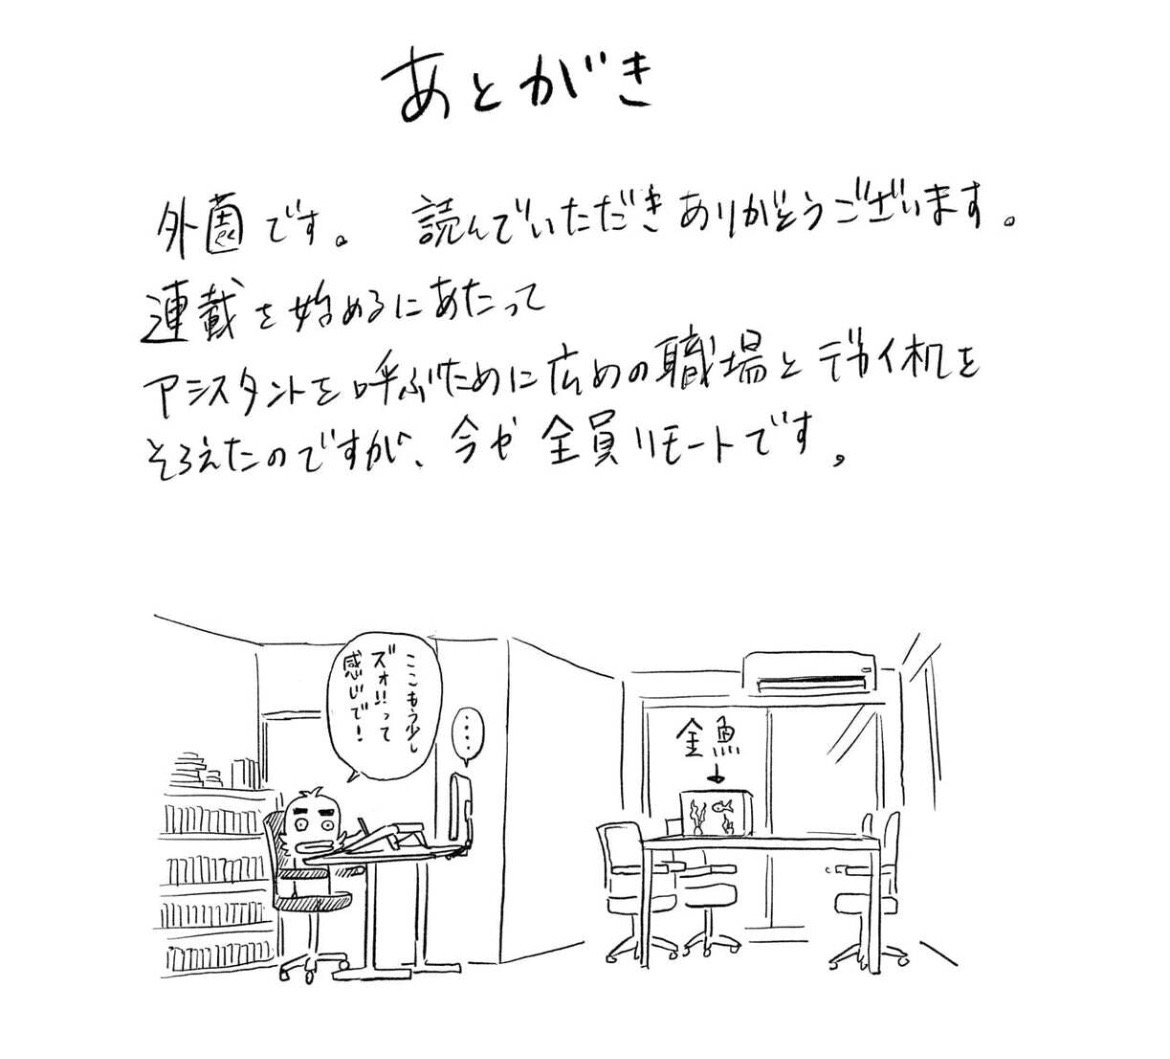 あとがき
外薗です。 読んでいただきありがとうございます。
連載を始めるにあたって
アシスタントを呼ぶために広めの職場とデカイ机を
そろえたのですが、今や全員リモートです。
ここもう少し
ズオ!!って
感じで!
....
金魚